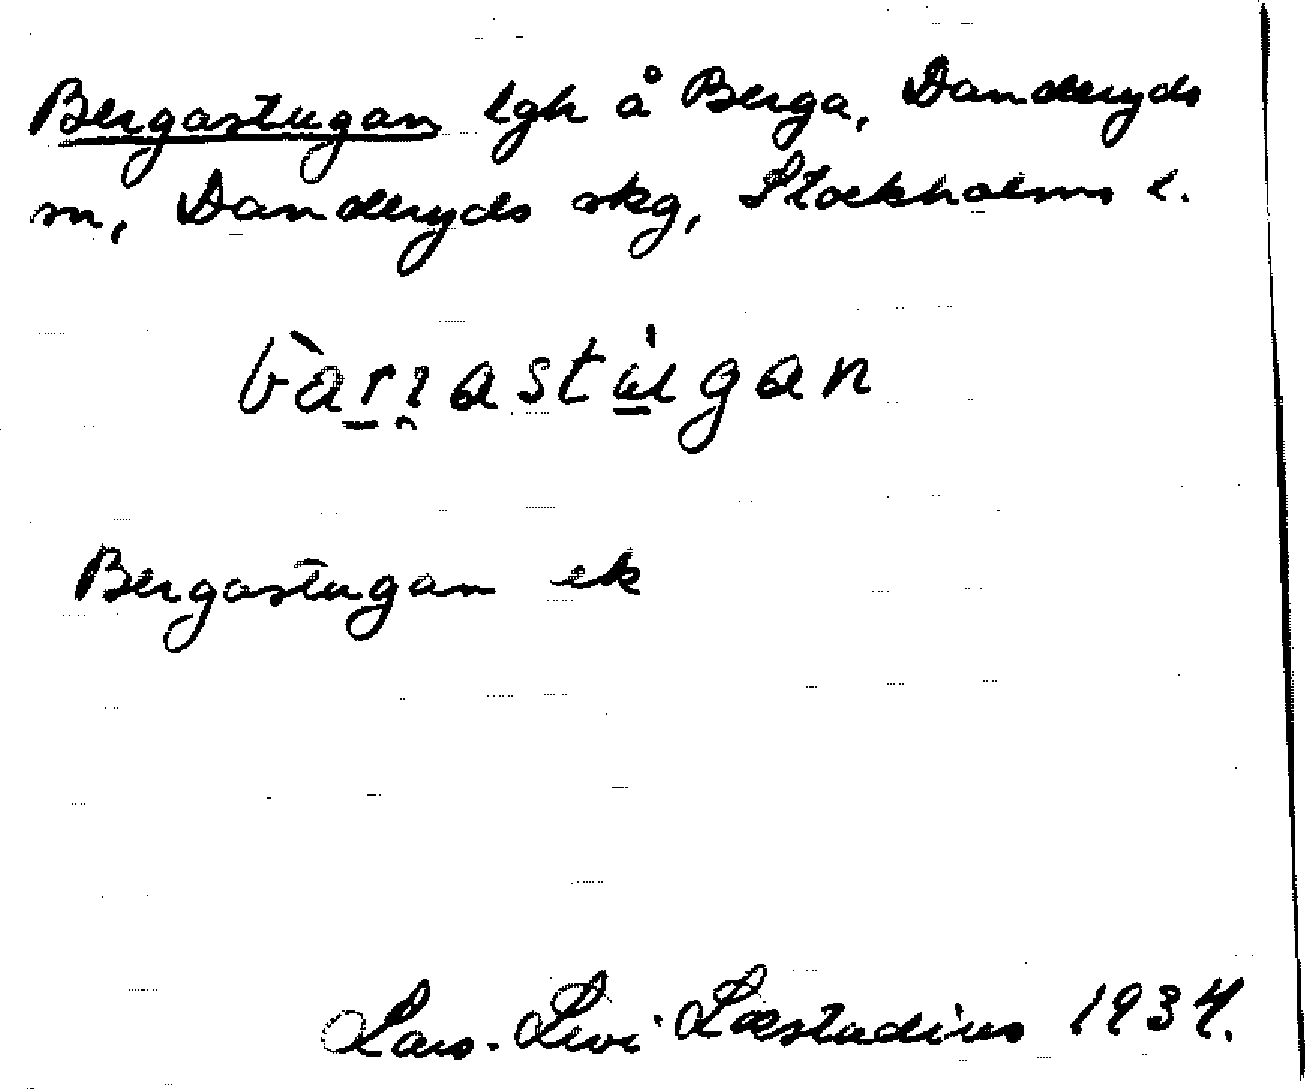 Bergastugan lgh å Berga, Danderyds
sn, Danderyds skg, Stockholms l.
Bergastugan ek
Lars-Levi Læstadius 1934.